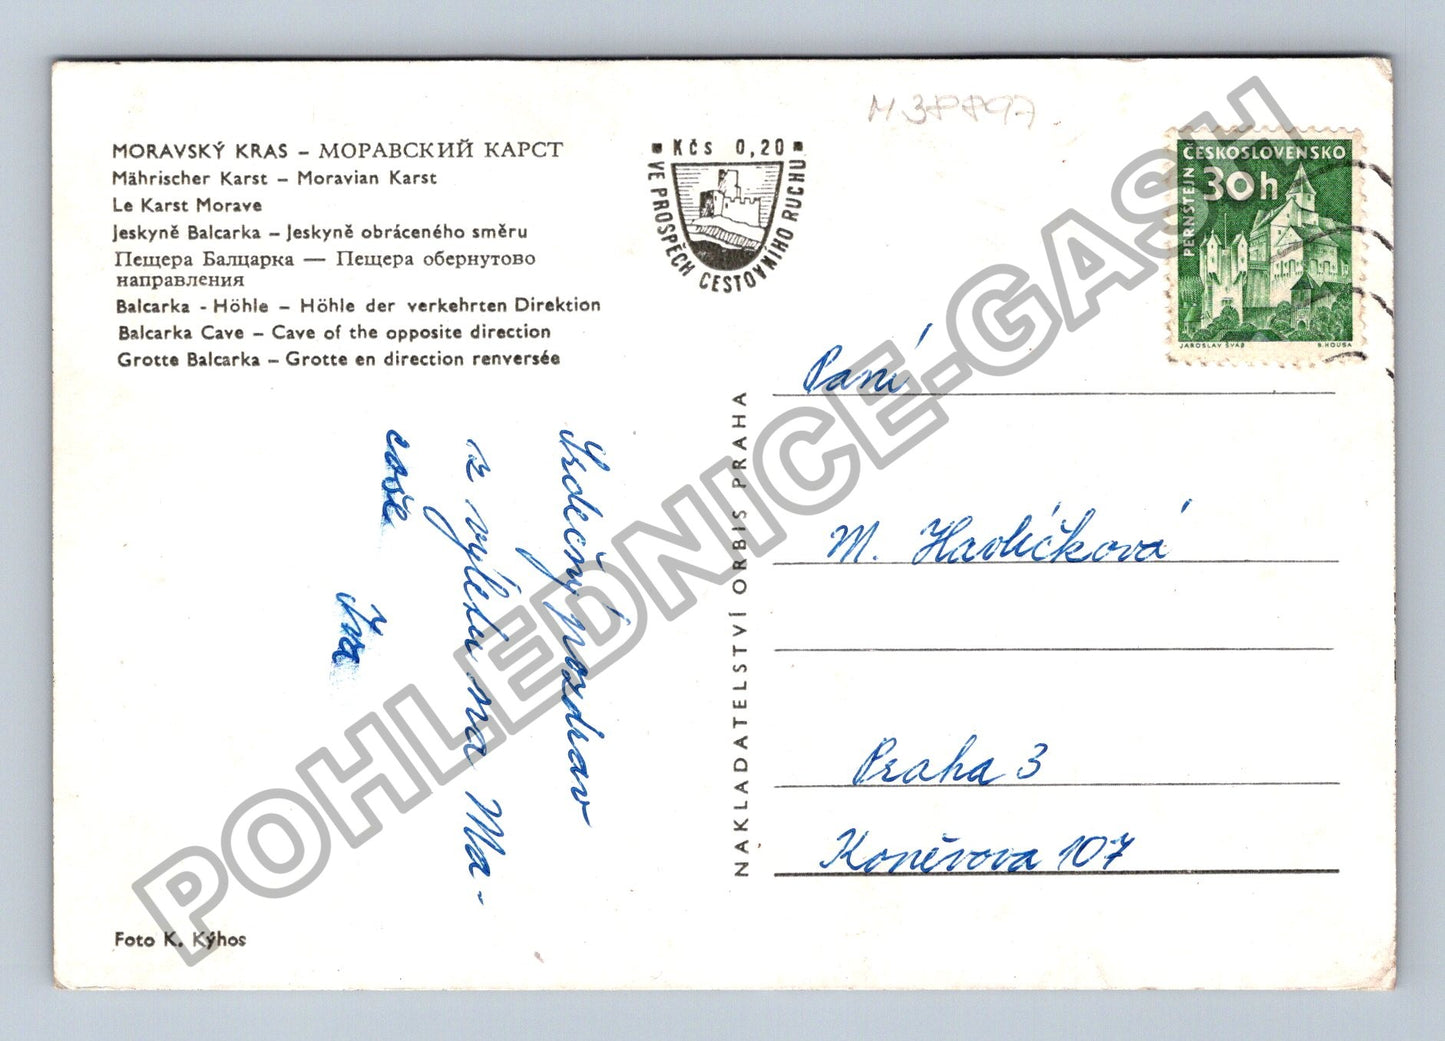 MORAVSKÝ KRAS – МОРАВСКИЙ КАРСТ
Mährischer Karst – Moravian Karst
Le Karst Morave
Jeskyně Balcarka – Jeskyně obráceného směru
Пещера Балцарка — Пещера обернутово
направления
Balcarka - Höhle – Höhle der verkehrten Direktion
Balcarka Cave – Cave of the opposite direction
Grotte Balcarka – Grotte en direction renversée
Kčs 0,20
VE PROSPĚCH CESTOVNÍHO RUCHU
M 38897
ČESKOSLOVENSKO
30h
PERNŠTEJN
JAROSLAV ŠVÁB
B. HOUSA
Srdečný pozdrav
z výletu na Ma-
coše
Iva
NAKLADATELSTVÍ ORBIS PRAHA
Paní
M. Havlíčková
Praha 3
Koněvova 107
Foto K. Kýhos
POHLEDNICE-GASH